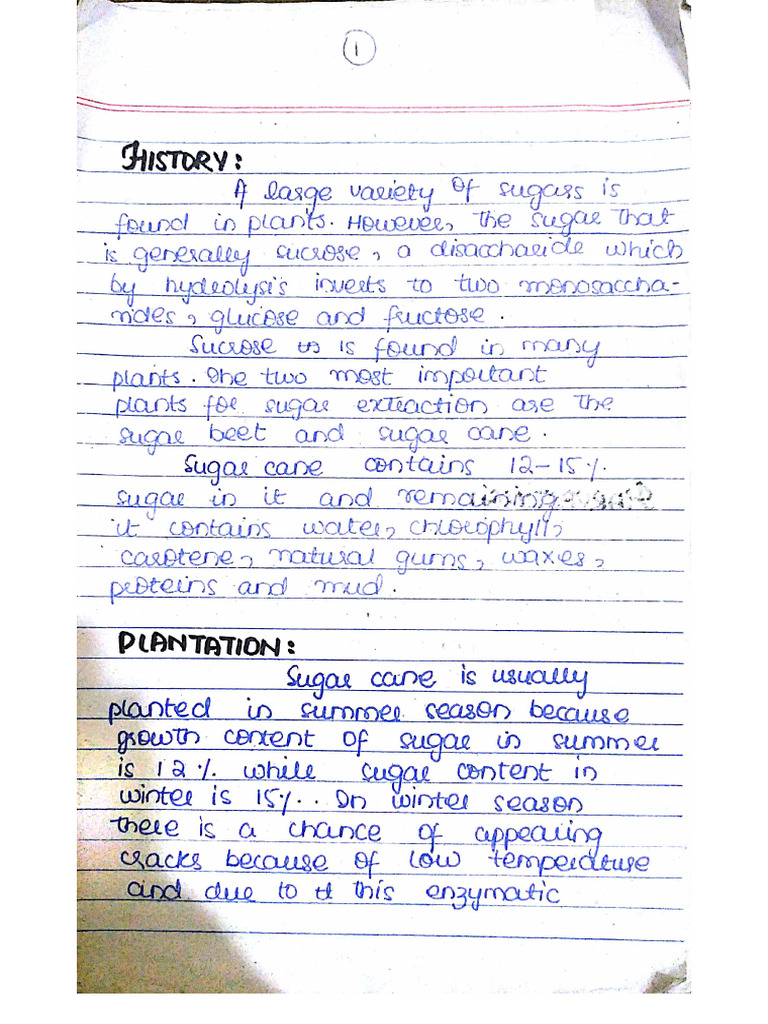 1
HISTORY:
A large variety of sugars is
found in plants. However, the sugar that
is generally sucrose, a disaccharide which
by hydrolysis inverts to two monosaccha-
rides, glucose and fructose.
Sucrose is found in many
plants. The two most important
plants for sugar extraction are the
sugar beet and sugar cane.
Sugar cane contains 12-15%
sugar in it and remaining
it contains water, chlorophyll,
carotene, natural gums, waxes,
proteins and mud.
PLANTATION:
Sugar cane is usually
planted in summer season because
growth content of sugar in summer
is 12% while sugar content in
winter is 15%. In winter season
there is a chance of appearing
cracks because of low temperature
and due to this enzymatic